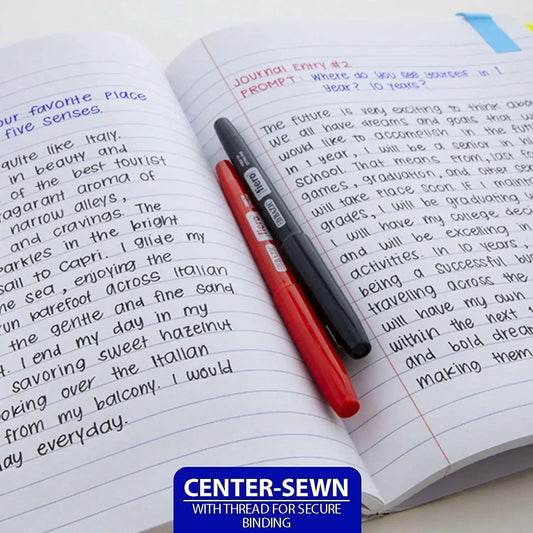 our favorite place
five senses.
quite like Italy.
in beauty and
of the best tourist
fragrant aroma of
narrow alleys,
and cravings. The
sparkles in the bright
sail to Capri. I glide my
the sea, enjoying the
run barefoot across Italian
the gentle and fine sand
I end my day in my
savoring sweet hazelnut
looking over the Italian
from my balcony. I would
day everyday.
Journal Entry #2
PROMPT: Where do you see yourself in 1
Year? 10 years?
The future is very exciting to think about
We all have dreams and goals that we
would like to accomplish in the future
in 1 year, I will be a senior in high
school. That means prom, last fo
games, graduation, and other sen
will take place soon. If I maintain
grades, I will be graduating w
I will have my college decis
and will be excelling in
activities. In 10 years,
being a successful bus
traveling across the
will have my own
within the next 1
and bold dream
making them
flero
flero
CENTER-SEWN
WITH THREAD FOR SECURE
BINDING